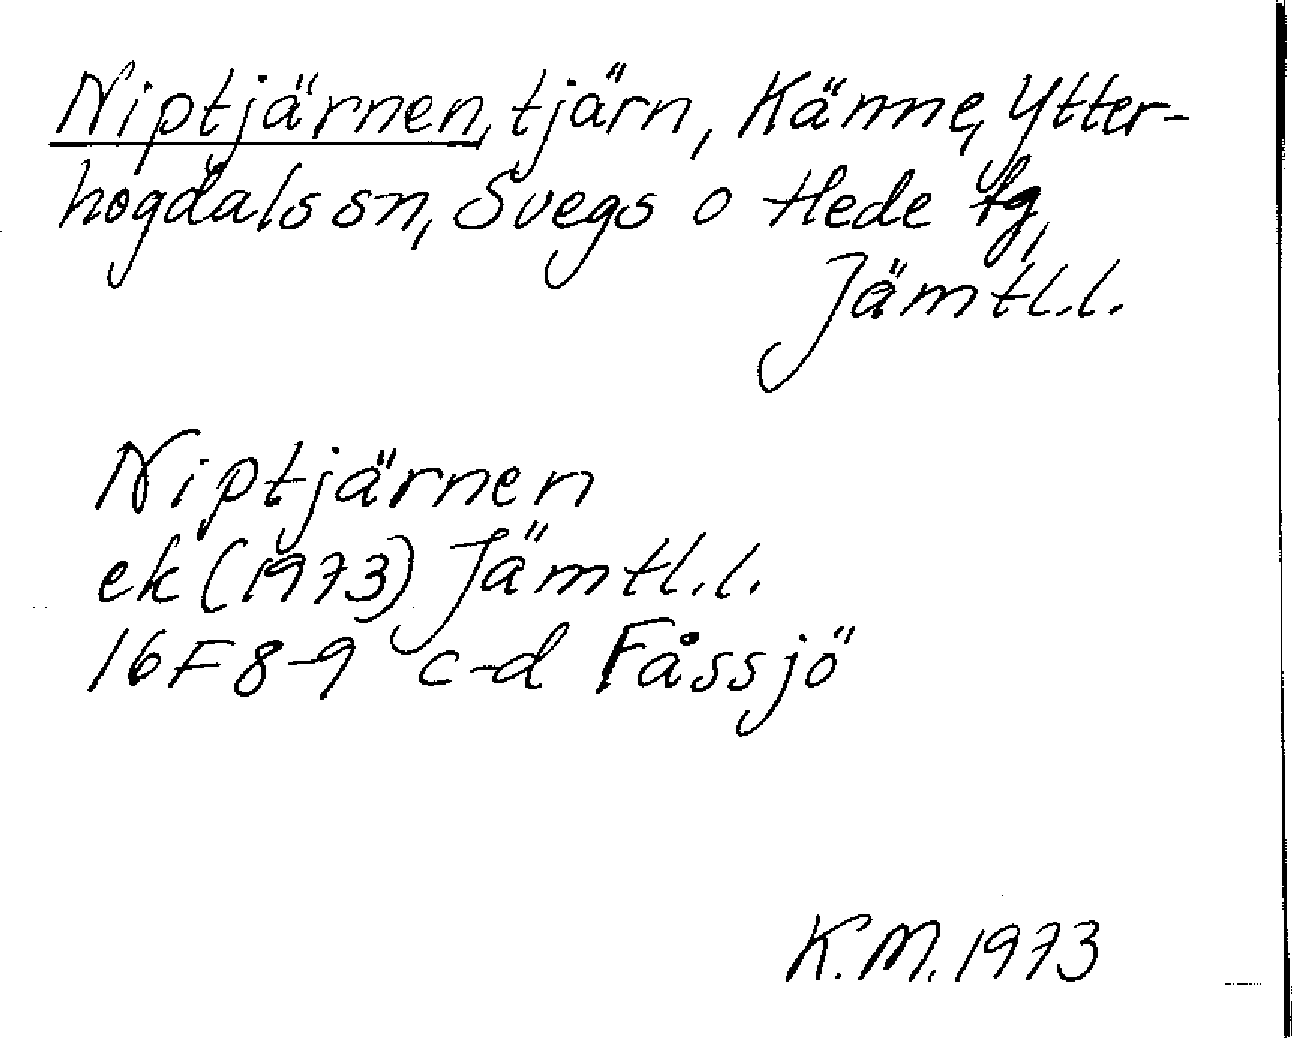 Niptjärnen, tjärn, Känne, Ytter-
hogdals sn, Svegs o Hede tg,
Jämtl.l.
Niptjärnen
ek (1973) Jämtl.l.
16F 8-9 c-d Fåssjö
K.M. 1973